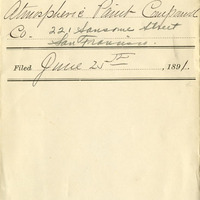 Atmospheric Paint Compound
Co. 221 Sansome Street
San Francisco.
Filed June 25th, 1891.